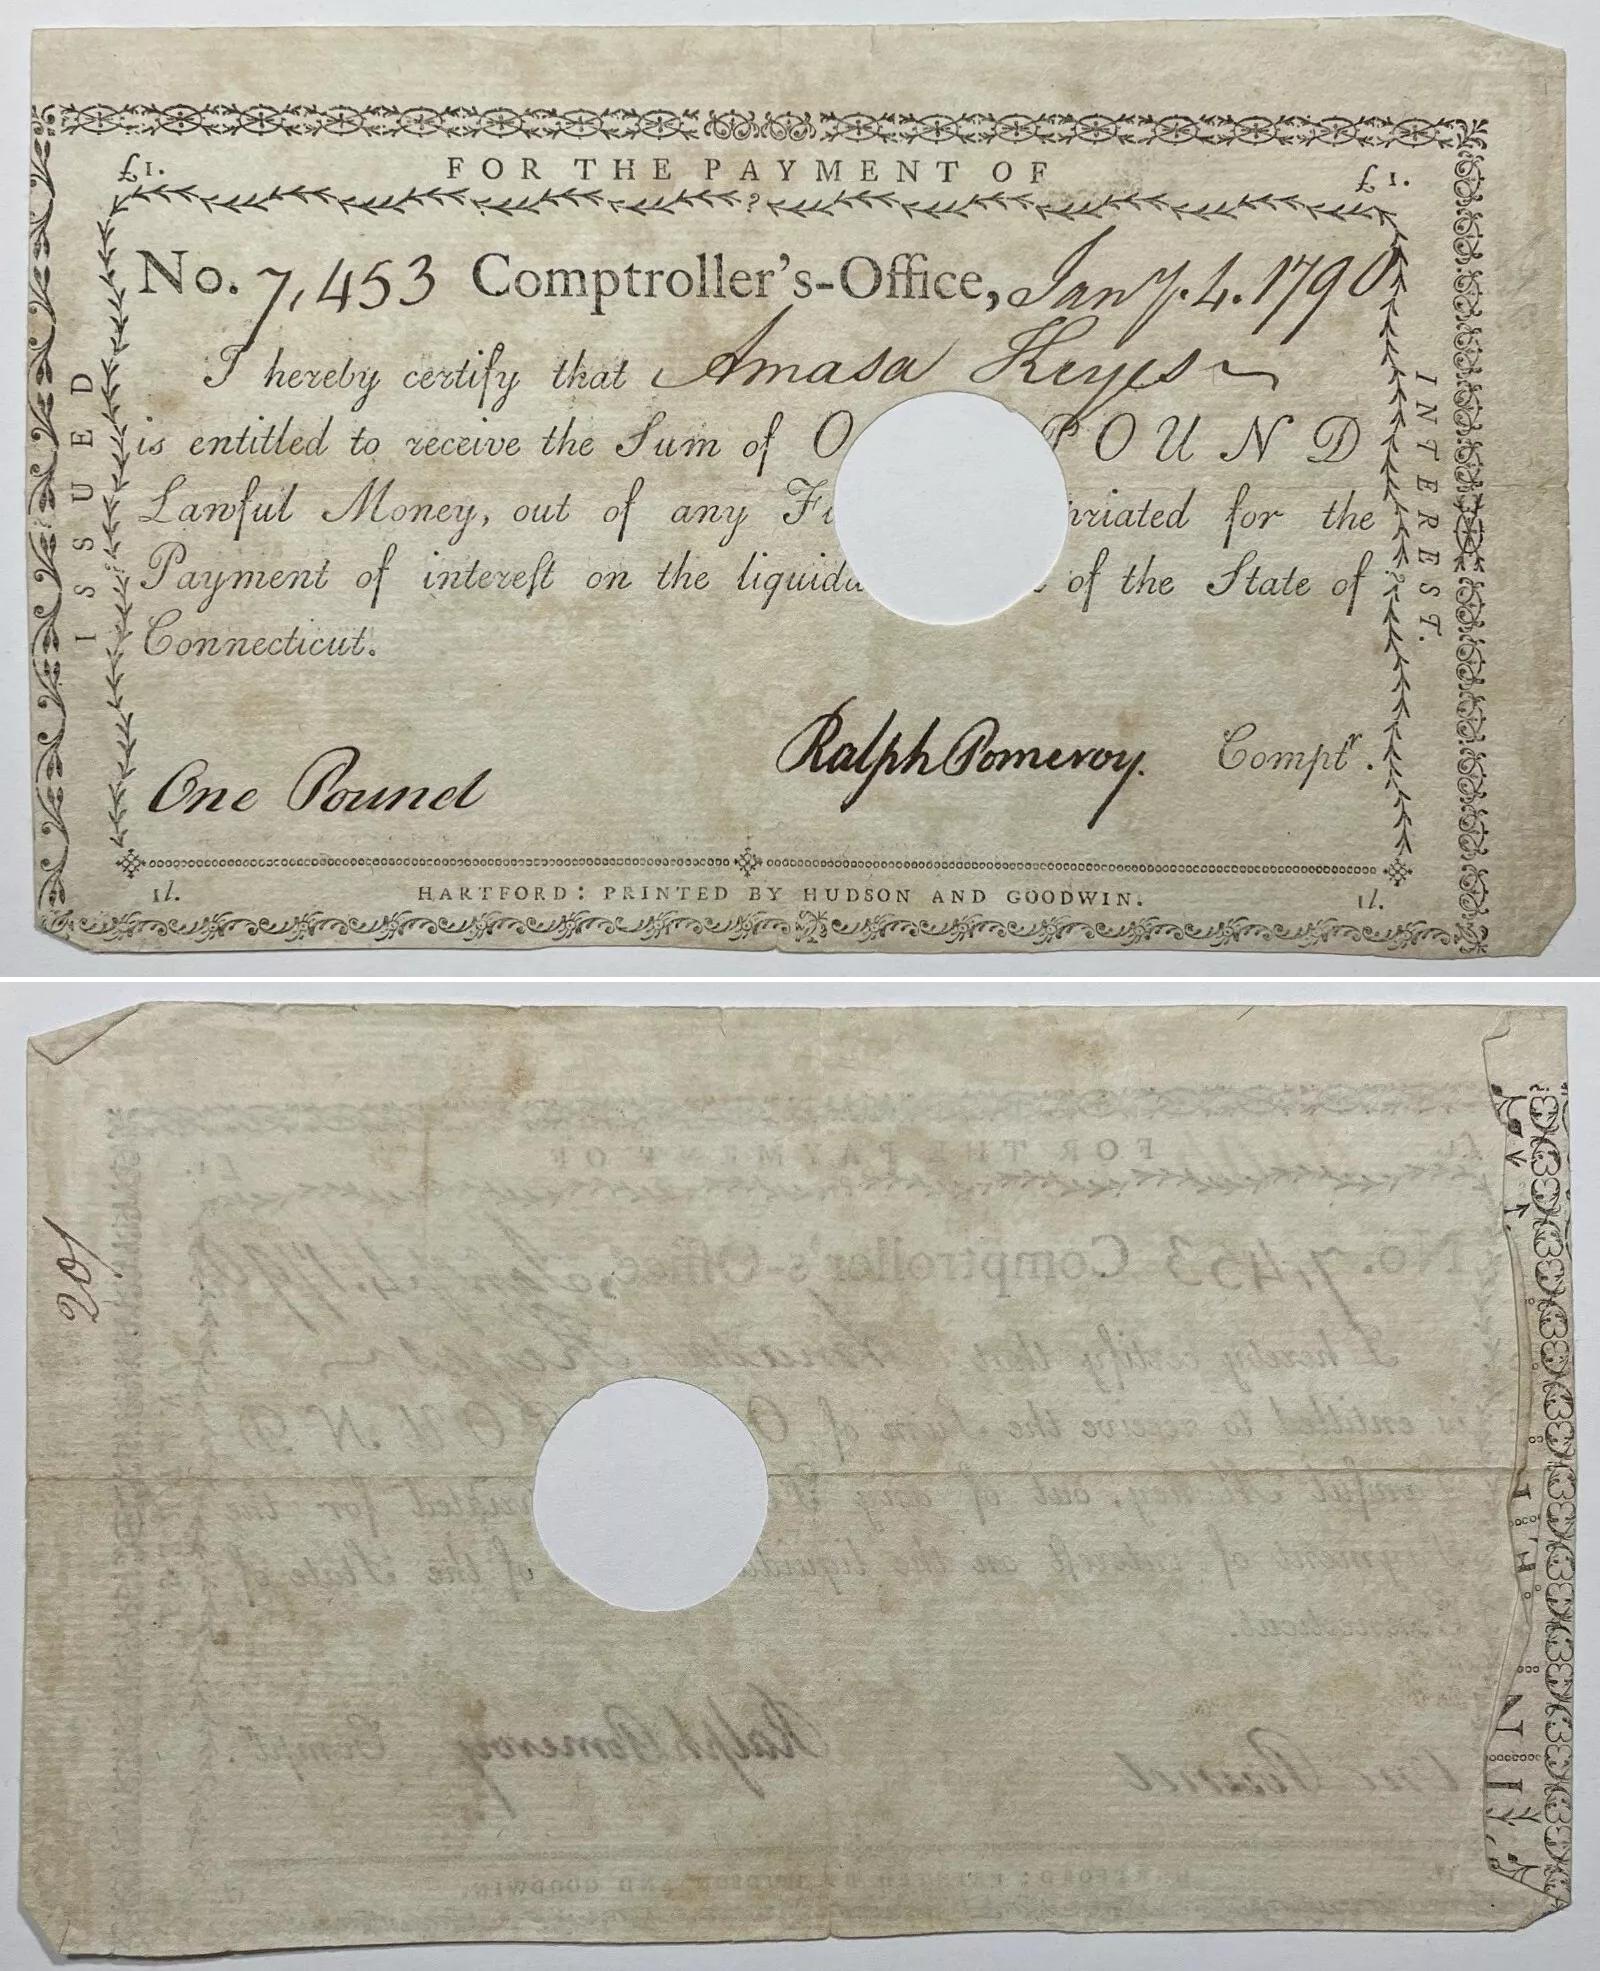 £1. FOR THE PAYMENT OF £1.
No. 7,453 Comptroller's-Office, Jany. 4. 1790
I hereby certify that Amasa Keyes
is entitled to receive the Sum of O POUND
Lawful Money, out of any Fu priated for the
Payment of intereſt on the liquida of the State of
Connecticut.
ISSUED
INTEREST.
Ralph Pomeroy. Comptr.
One Pound
1l. HARTFORD: PRINTED BY HUDSON AND GOODWIN. 1l.
201